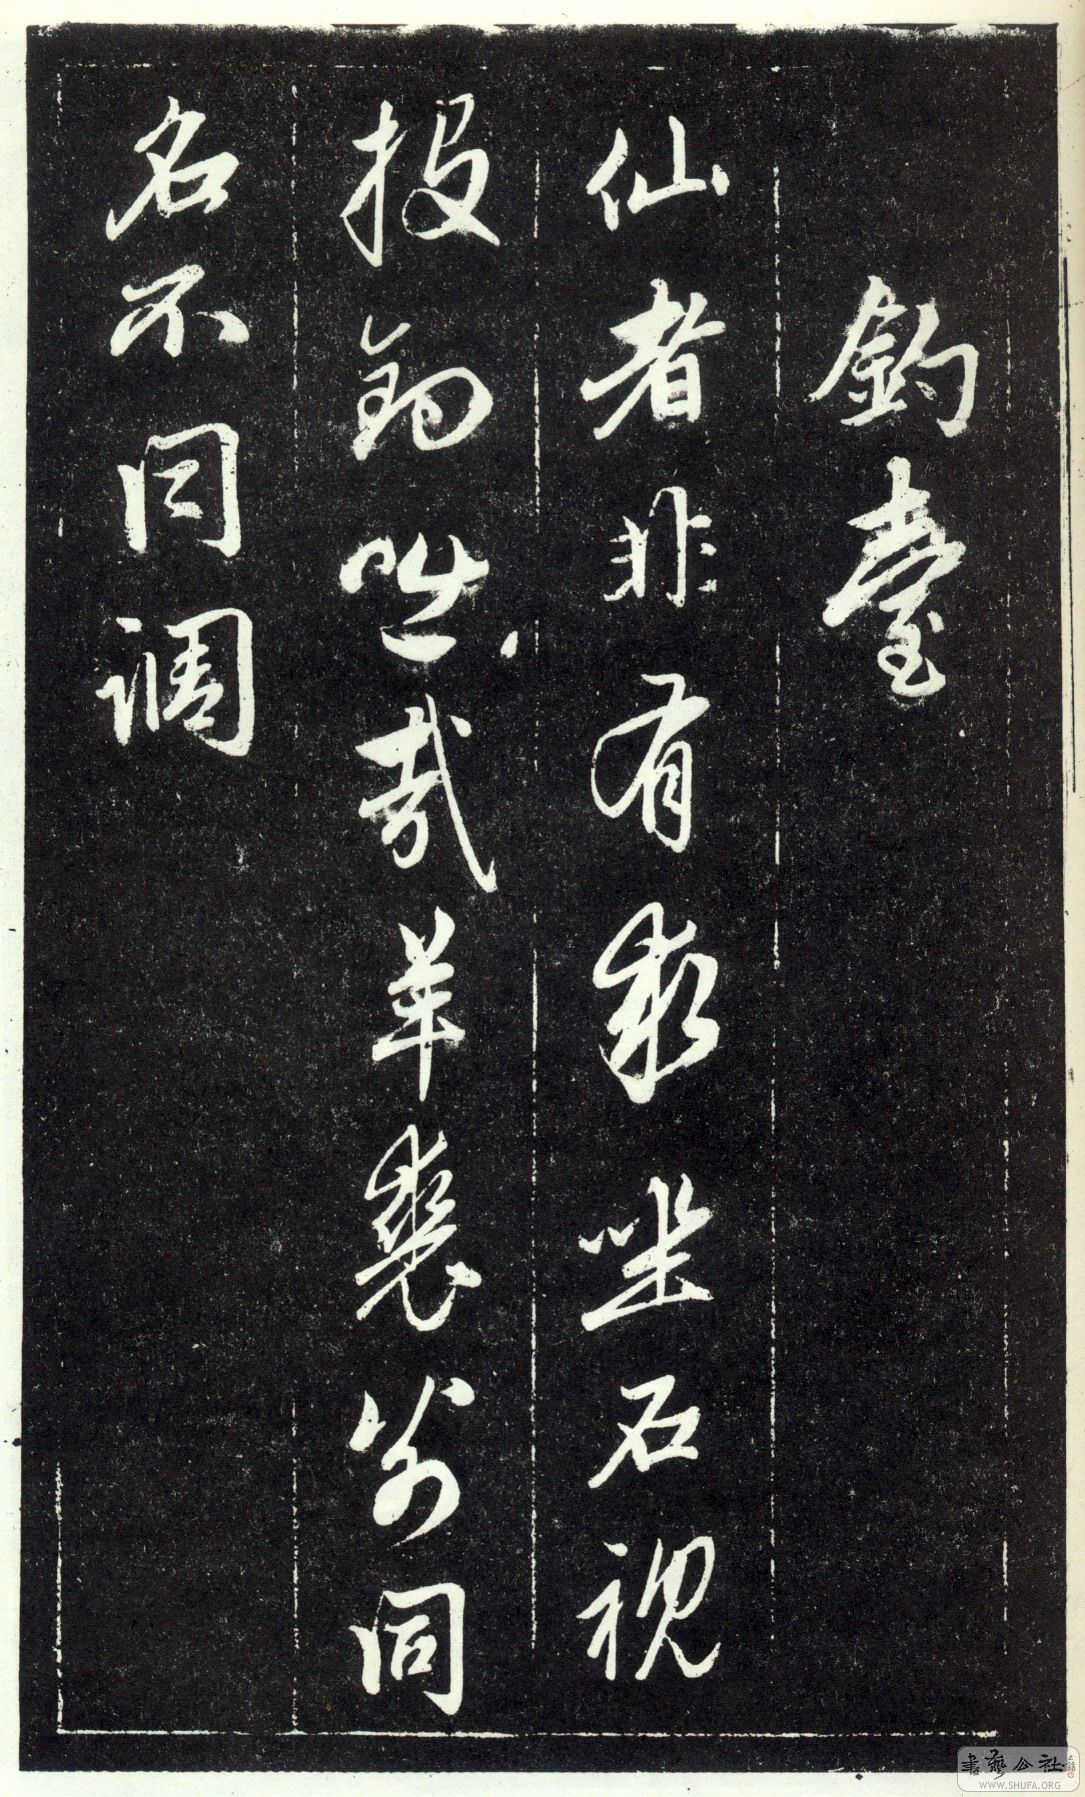 釣臺
仙者非有求坐石視
投鈎咄哉羊裘子同
名不同調
書藝公社
WWW.SHUFA.ORG